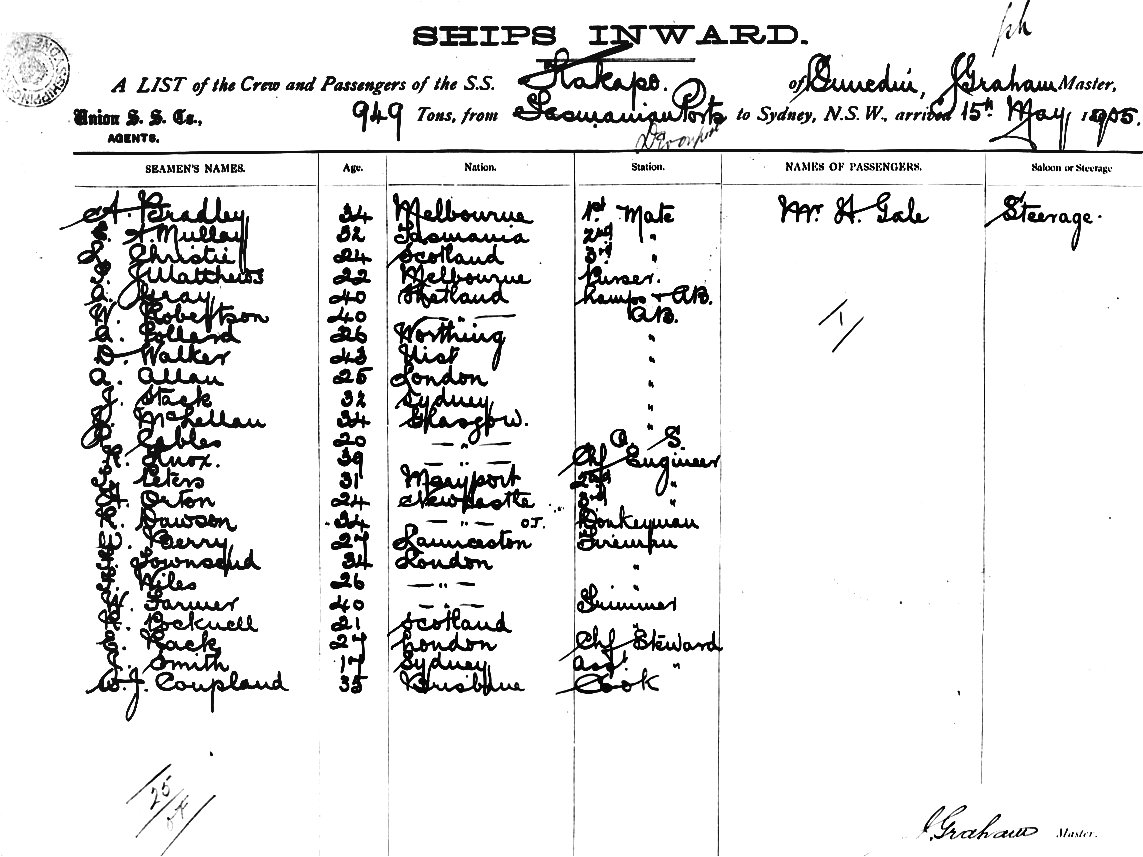 SHIPS INWARD.
A LIST of the Crew and Passengers of the S.S. Kakapo. of Dunedin, J Graham Master,
Union S. S. Co., AGENTS. 949 Tons, from Tasmanian Ports to Sydney, N.S.W., arrived 15th May 1905.
Devonport
SEAMEN'S NAMES. Age. Nation. Station. NAMES OF PASSENGERS. Saloon or Steerage
A. Bradley 34 Melbourne 1st Mate Mr H. Gale Steerage.
Mullay 32 Tasmania 2nd "
Christie 24 Scotland 3rd "
J Matthews 22 Melbourne Purser.
A. Gray 40 Shetland Lamps + AB.
W. Robertson 40 — " — AB.
A. Pollard 26 Worthing "
D. Walker 43 Uist "
A. Allan 25 London "
J. Stack 32 Sydney "
McLellan 34 Glasgow. "
Cables 20 — " — O. S.
R. Knox. 39 — " — Chf Engineer
Peters 31 Maryport 2nd "
Orton 24 Newcastle 3rd "
Dawson 34 — " — Donkeyman
Berry 27 Launceston Fireman
Townsend 34 London "
Wiles 26 — " — "
W. Farmer 40 — " — Trimmer
Bocknell 21 Scotland "
Rack 27 London Chf Steward
J. Smith 17 Sydney Asst "
W. J. Coupland 35 Brisbane Cook
1
25
J. Graham Master.